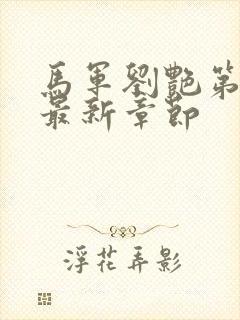 馬軍劉艷第
最新章節
浮花弄影